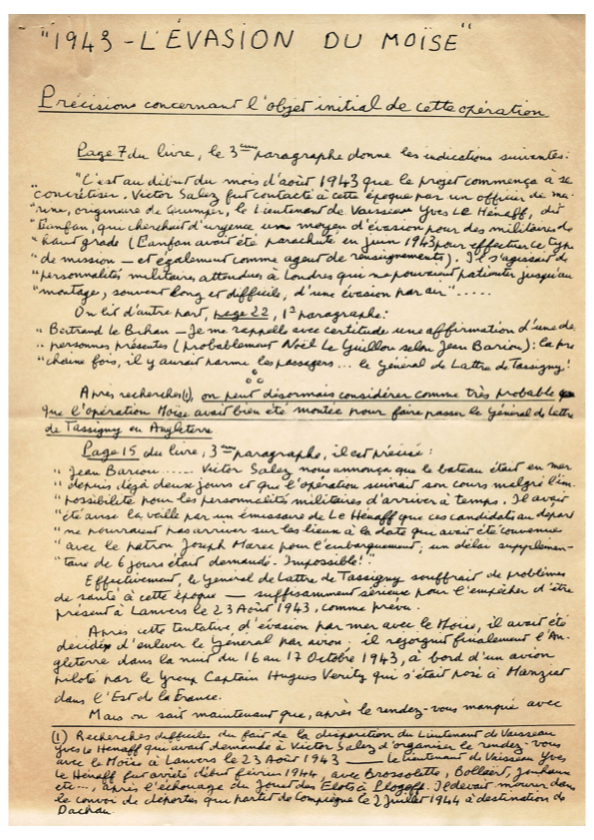 "1943 - L'ÉVASION DU MOÏSE"
Précisions concernant l'objet initial de cette opération
Page 7 du livre, le 3ème paragraphe donne les indications suivantes :
"C'est au début du mois d'août 1943 que le projet commença à se
"concrétiser. Victor Salez fut contacté à cette époque par un officier de ma-
"rine, originaire de Quimper, le Lieutenant de Vaisseau Yves LE Hénaff, dit
"Fanfan, qui cherchait d'urgence un moyen d'évasion pour des militaires de
"haut grade (Fanfan avait été parachuté en juin 1943 pour effectuer ce type
"de mission — et également comme agent de renseignements). Il s'agissait de
"personnalités militaires attendues à Londres qui ne pouvaient patienter jusqu'au
"montage, souvent long et difficile, d'une évasion par air".....
On lit d'autre part, page 22, 1er paragraphe :
"Bertrand le Bihan — Je me rappelle avec certitude une affirmation d'une des
"personnes présentes (probablement Noël Le Guillou selon Jean Bariou) : la pro
"chaine fois, il y aurait parmi les passagers... le Général de Lattre de Tassigny"
Après recherches(1), on peut désormais considérer comme très probable que
que l'opération Moïse avait bien été montée pour faire passer le Général de Lattre
de Tassigny en Angleterre
Page 15 du livre, 3ème paragraphe, il est précisé :
"Jean Bariou ...... Victor Salez nous annonça que le bateau était en mer
"depuis déjà deux jours et que l'opération suivait son cours malgré l'im-
"possibilité pour les personnalités militaires d'arriver à temps. Il avait
"été avisé la veille par un émissaire de Le Hénaff que ces candidats au départ
"ne pourraient pas arriver sur les lieux à la date qui avait été convenue
"avec le patron Joseph Marec pour l'embarquement ; un délai supplémen-
"taire de 6 jours était demandé. Impossible!"
Effectivement, le Général de Lattre de Tassigny souffrait de problèmes
de santé à cette époque — suffisamment sérieux pour l'empêcher d'être
présent à Lanvers le 23 Août 1943, comme prévu.
Après cette tentative d'évasion par mer avec le Moïse, il avait été
décidé d'enlever le Général par avion : il rejoignit finalement l'An-
gleterre dans la nuit du 16 au 17 Octobre 1943, à bord d'un avion
piloté par le Group Captain Hugues Verity qui s'était posé à Manziat
dans l'Est de la France.
Mais on sait maintenant que, après le rendez-vous manqué avec
(1) Recherches difficiles du fait de la disparition du Lieutenant de Vaisseau
Yves Le Hénaff qui avait demandé à Victor Salez d'organiser le rendez-vous
avec le Moïse à Lanvers le 23 Août 1943 — Le lieutenant de Vaisseau Yves
Le Hénaff fut arrêté début février 1944, avec Brossolette, Bollaert, Jouhaux
etc..., après l'échouage du Jouet des Flots à Plogoff. Il devait mourir dans
le convoi de déportés qui partit de Compiègne le 2 Juillet 1944 à destination de
Dachau